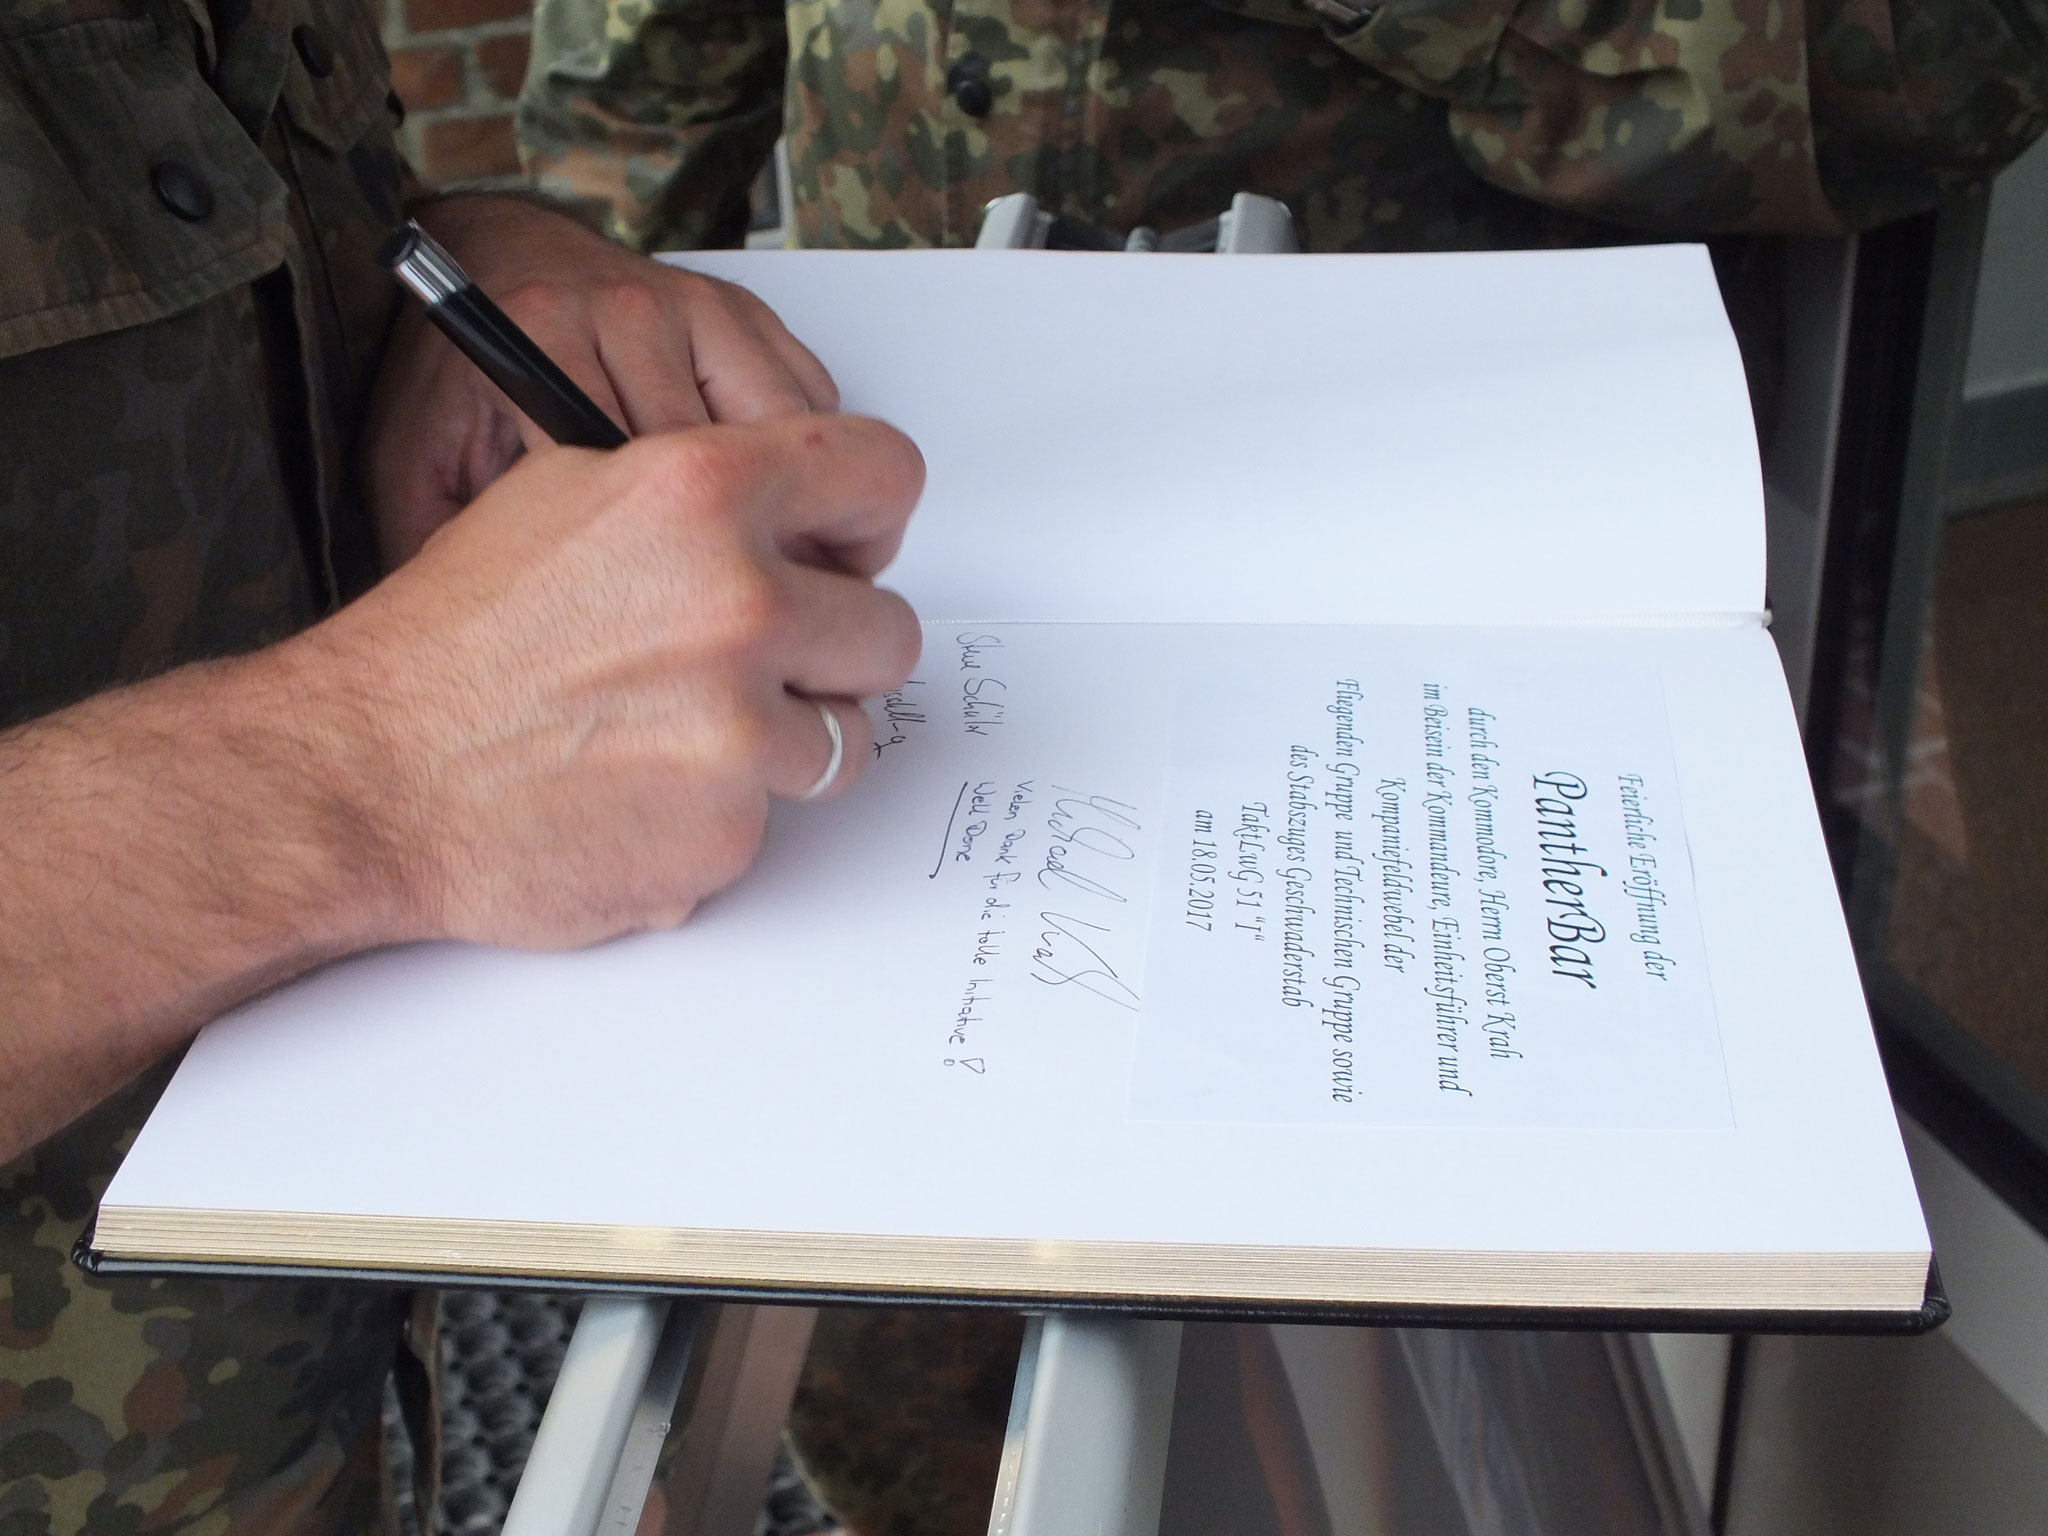 Feierliche Eröffnung der
PantherBar
durch den Kommodore, Herrn Oberst Krah
im Beisein der Kommandeure, Einheitsführer und
Kompaniefeldwebel der
Fliegenden Gruppe und Technischen Gruppe sowie
des Stabszuges Geschwaderstab
TaktLwG 51 "I"
am 18.05.2017
Vielen Dank für die tolle Initiative!
Well Done